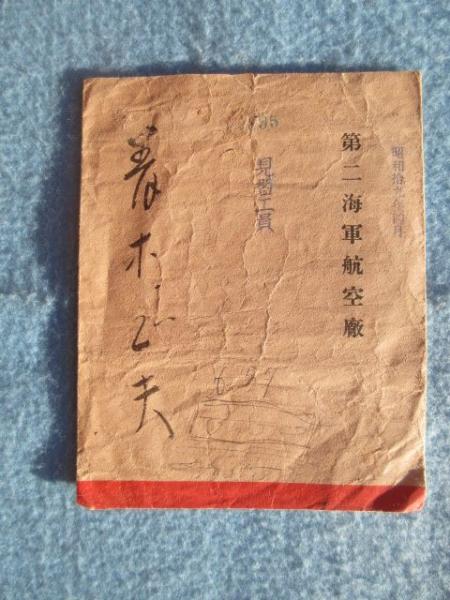 昭和拾九年四月
第二海軍航空廠
見習工員
青木正夫
697